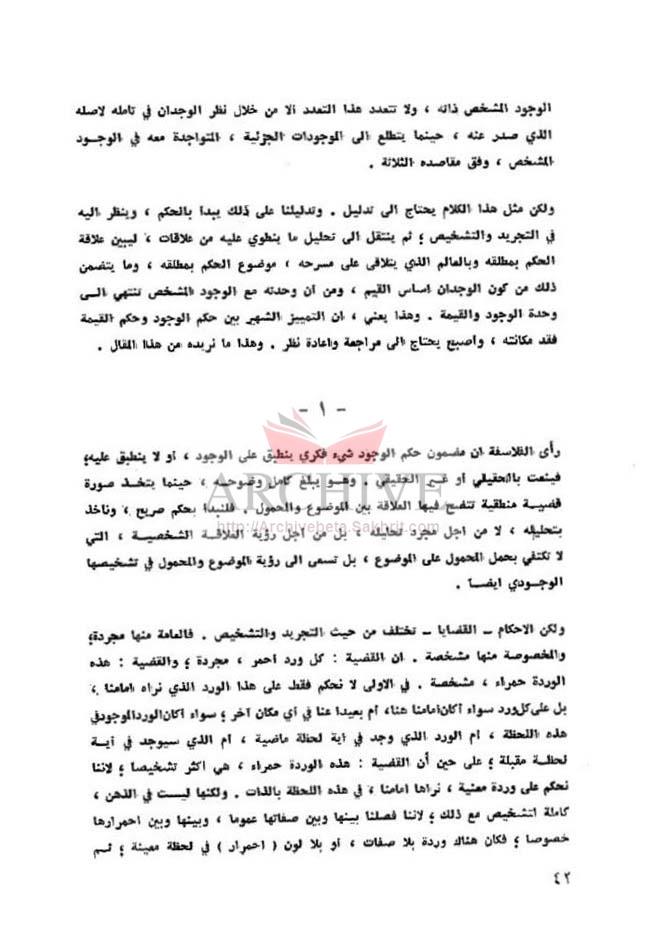 الوجود المشخص ذاته ، ولا تتعدد هذا التعدد الا من خلال نظر الوجدان في تامله لاصله
الذي صدر عنه ، حينما يتطلع الى الموجودات الجزئية ، المتواجدة معه في الوجود
المشخص ، وفق مقاصده الثلاثة .
ولكن مثل هذا الكلام يحتاج الى تدليل . وتدليلنا على ذلك يبدأ بالحكم ، وينظر اليه
في التجريد والتشخيص ؛ ثم ينتقل الى تحليل ما ينطوي عليه من علاقات ، ليبين علاقة
الحكم بمطلقه وبالعالم الذي يتلاقى على مسرحه ، موضوع الحكم بمطلقه ، وما يتضمن
ذلك من كون الوجدان اساس القيم ، ومن أن وحدته مع الوجود المشخص تنتهي الى
وحدة الوجود والقيمة . وهذا يعني ، ان التمييز الشهير بين حكم الوجود وحكم القيمة
فقد مكانته ، وأصبح يحتاج الى مراجعة واعادة نظر . وهذا ما نريده من هذا المقال .
- ١ -
رأى الفلاسفة ان مضمون حكم الوجود شيء فكري ينطبق على الوجود ، أو لا ينطبق عليه؛
فينعت بالحقيقي أو غير الحقيقي . وهو يبلغ كامل وضوحه ، حينما يتخذ صورة
قضية منطقية تتضح فيها العلاقة بين الموضوع والمحمول . فلنبدأ بحكم صريح ، وناخذ
بتحليله ، لا من اجل مجرد تحليله ، بل من أجل رؤية العلاقة الشخصية ، التي
لا تكتفي بحمل المحمول على الموضوع ، بل تسعى الى رؤية الموضوع والمحمول في تشخيصها
الوجودي ايضا .
ARCHIVE
http://Archivebeta.Sakhrit.com
ولكن الاحكام – القضايا – تختلف من حيث التجريد والتشخيص . فالعامة منها مجردة؛
والمخصوصة منها مشخصة . ان القضية : كل ورد احمر ، مجردة ؛ والقضية : هذه
الوردة حمراء ، مشخصة . في الاولى لا نحكم فقط على هذا الورد الذي نراه امامنا ،
بل على كل ورد سواء أكان امامنا هنا، أم بعيدا عنا في أي مكان آخر ؛ سواء أكان الورد الموجود في
هذه اللحظة ، أم الورد الذي وجد في أية لحظة ماضية ، أم الذي سيوجد في أية
لحظة مقبلة ؛ على حين أن القضية : هذه الوردة حمراء ، هي اكثر تشخيصا ؛ لاننا
نحكم على وردة معنية ، نراها امامنا ، في هذه اللحظة بالذات . ولكنها ليست في الذهن ،
كاملة التشخيص مع ذلك ؛ لاننا فصلنا بينها وبين صفاتها عموما ، وبينها وبين احمرارها
خصوصا ؛ فكان هناك وردة بلا صفات ، أو بلا لون ( احمرار ) في لحظة معينة ؛ ثم
٤٢